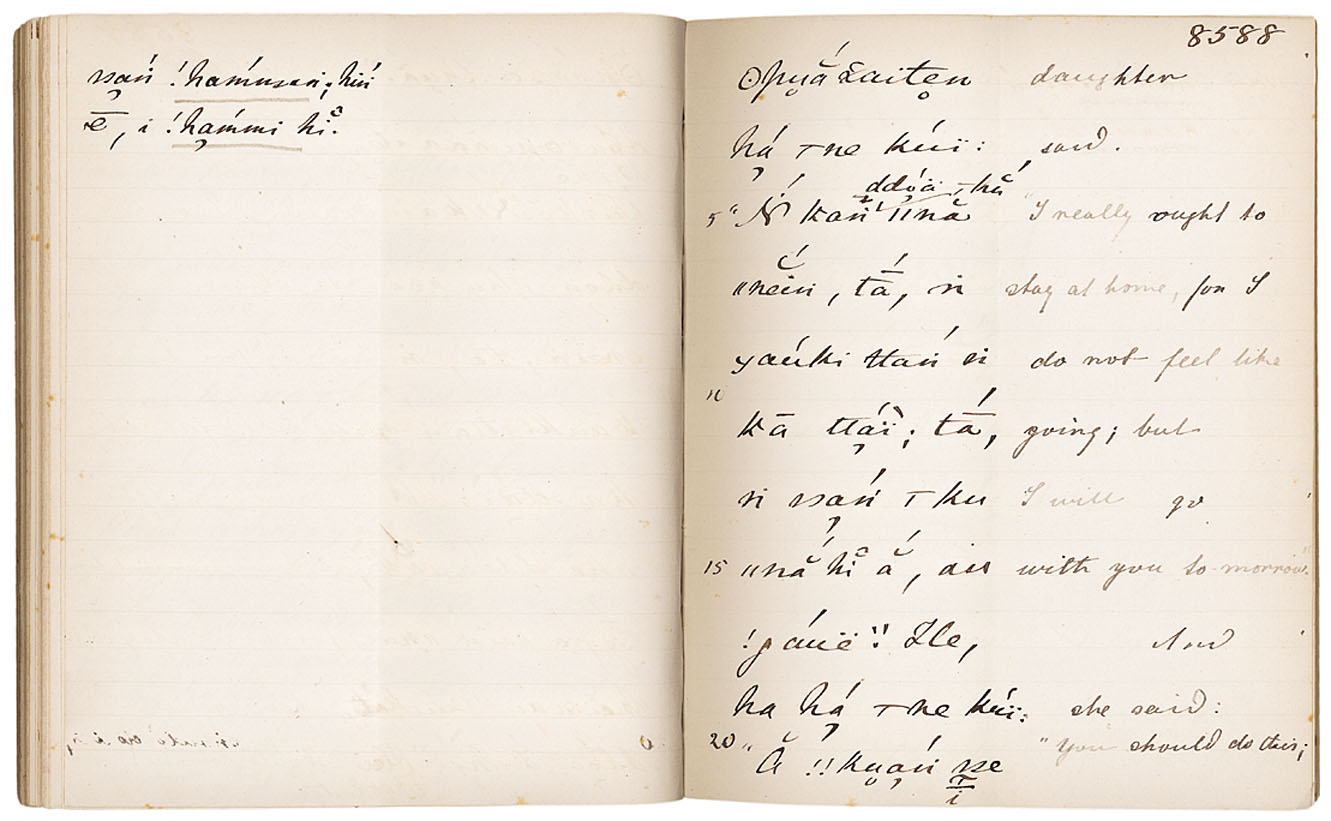 ssań !hamusen; hiń
ē, i !hammi hĭ.
8588
ʘpuăxaitẹn daughter
há ⊤ne kúï: said.
ddóä ⊤hŭ
5 "Ń kań ǁnă "I really ought to
ǁnĕin, tā́, n stay at home, for I
yaúki ttań n do not feel like
10
kā ttáï; tā́, going; but
n ssań ⊤ku I will go
15 ǁnă hĭ ă, au with you to-morrow."
!gáuë." He, And
ha há ⊤ne kúï: she said:
20 "Ă !!kuań sse "you should do this;
i